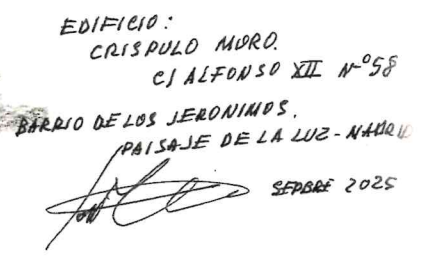 EDIFICIO:
CRISPULO MORO.
C/ ALFONSO XII Nº58
BARRIO DE LOS JERONIMOS.
PAISAJE DE LA LUZ - MADRID
SEPBRE 2025